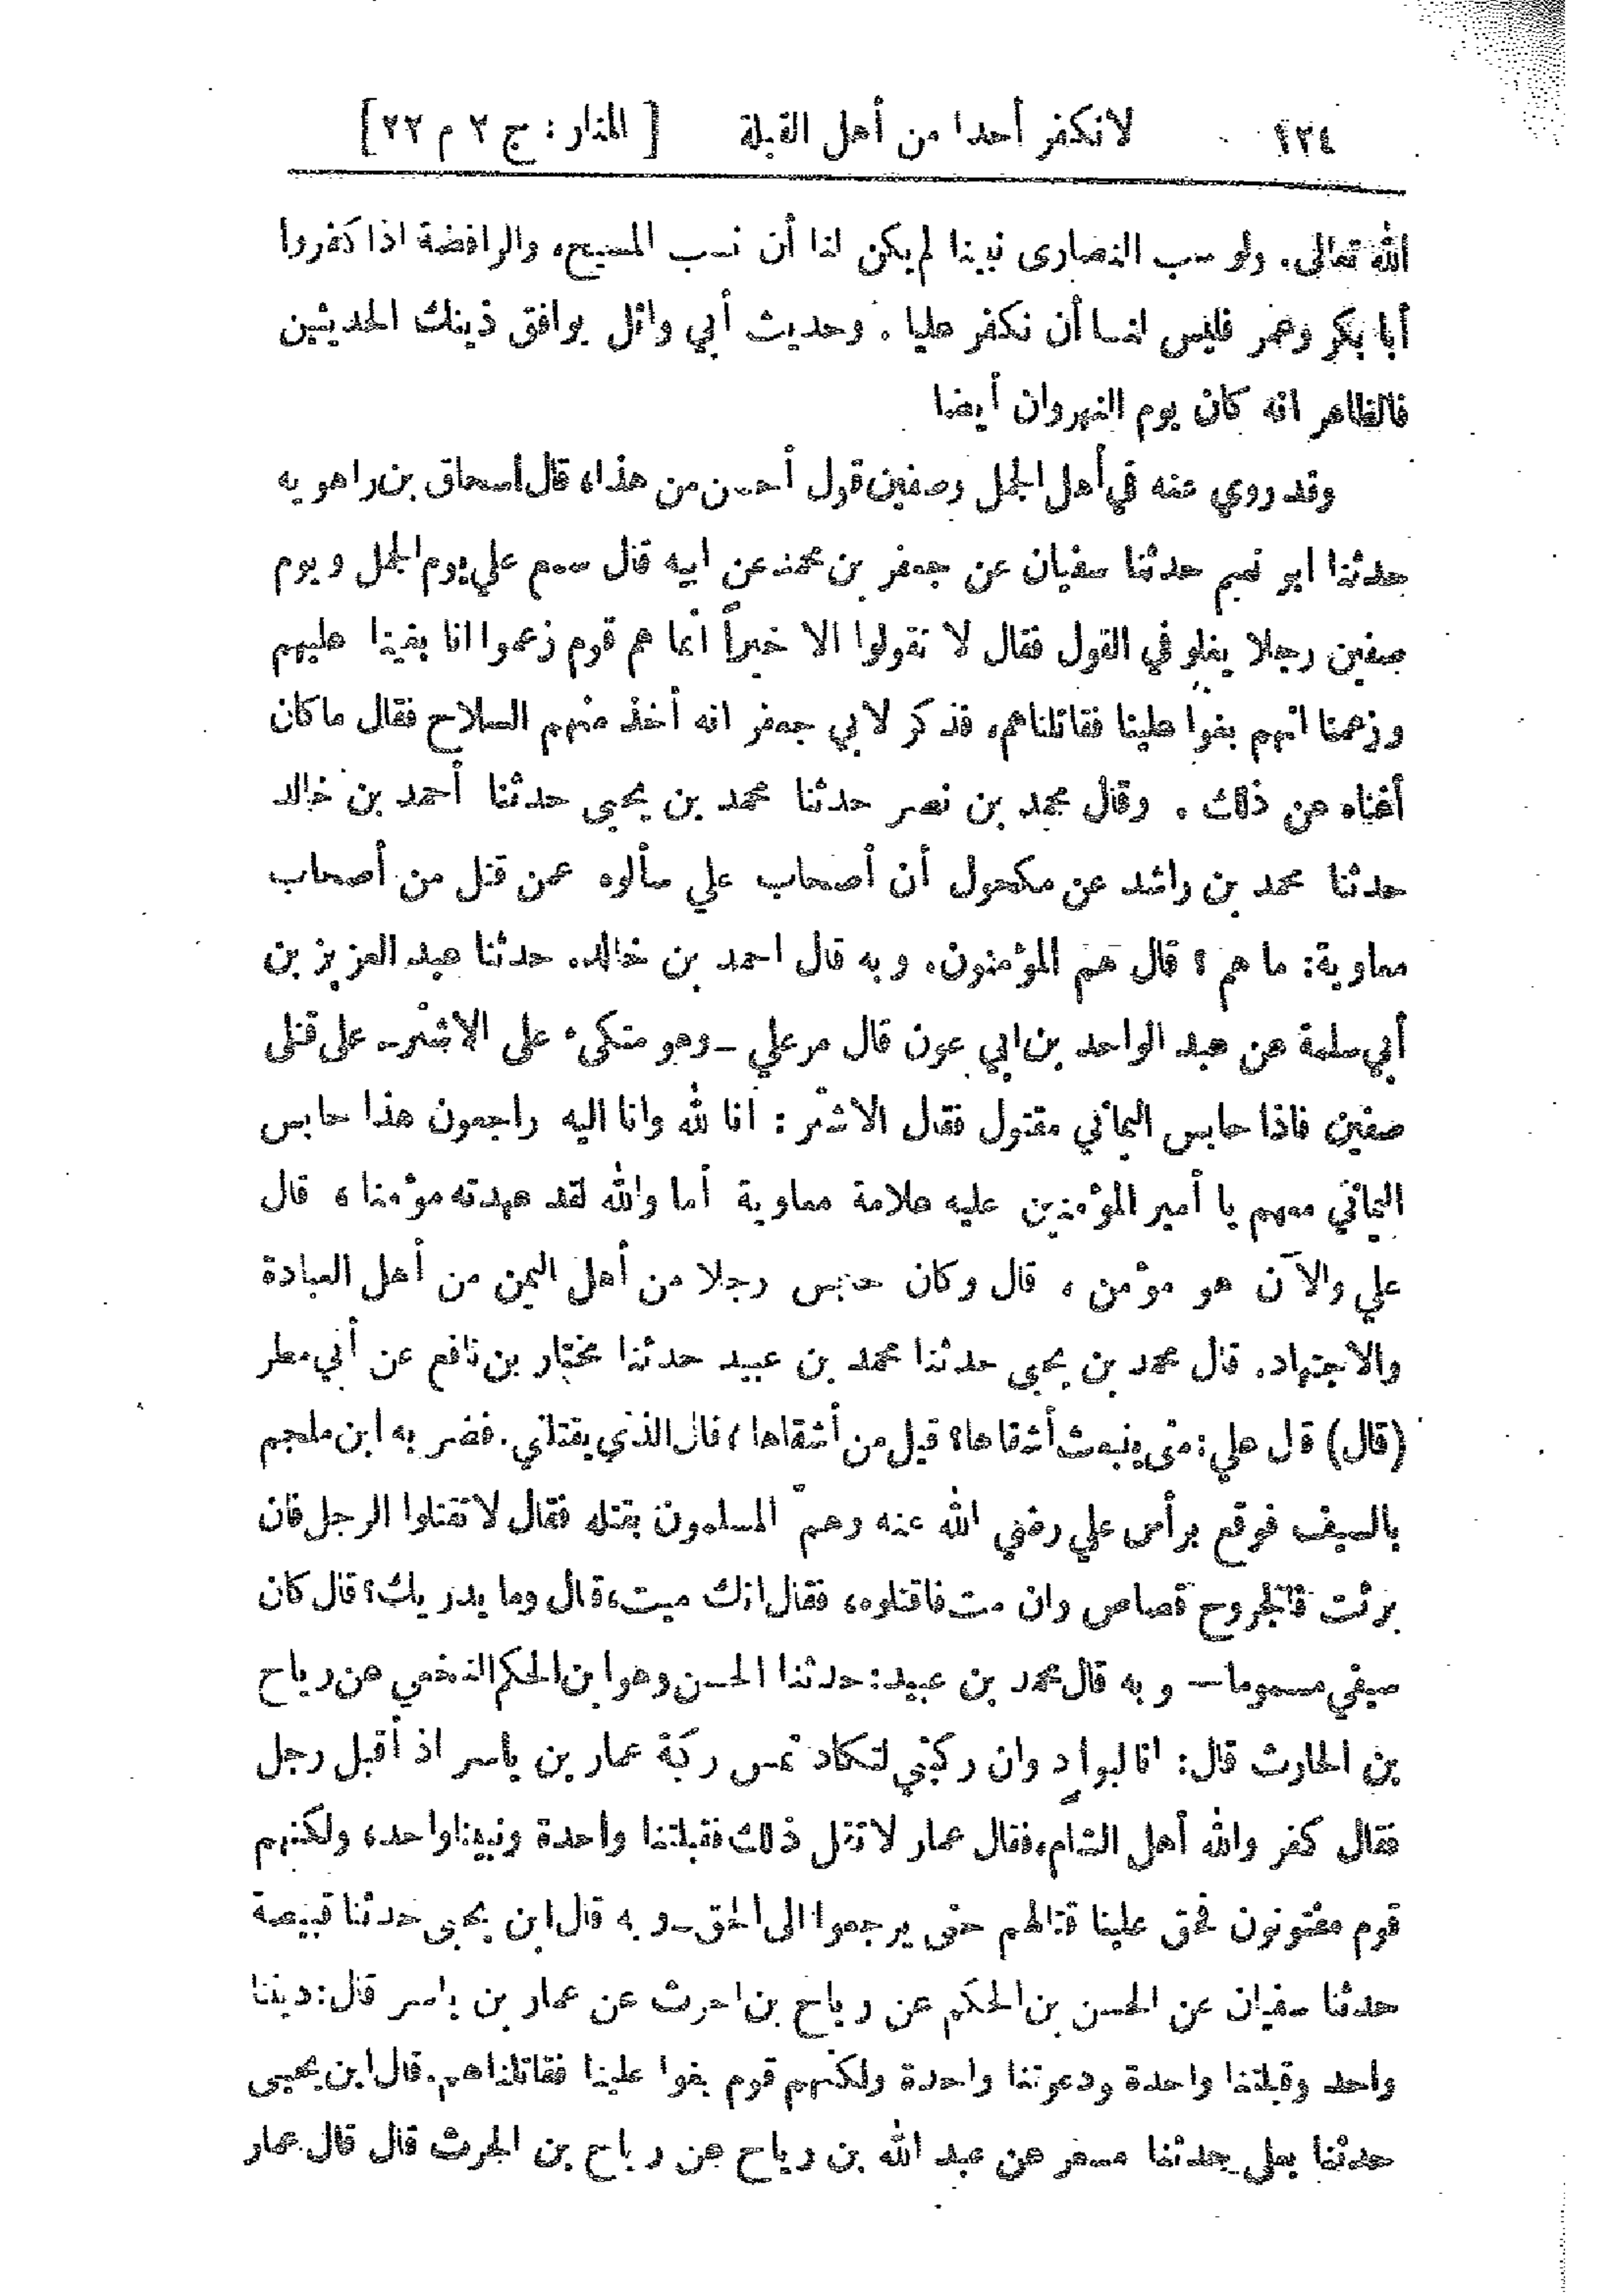 ١٢٤ لا نكفر أحدا من أهل القبلة [ المنار : ج ٢ م ٢٢ ]
الله تعالى. ولو سب النصارى نبينا لم يكن لنا أن نسب المسيح، والرافضة اذا كفروا
أبا بكر وعمر فليس لنا أن نكفر عليا . وحديث أبي وائل يوافق ذينك الحديثين
فالظاهر انه كان يوم النهروان أيضا
وقد روي عنه في أهل الجمل وصفين قول أحسن من هذا، قال اسحاق بن راهويه
حدثنا ابو نعيم حدثنا سفيان عن جعفر بن محمد عن ابيه قال سمع علي يوم الجمل ويوم
صفين رجلا يغلو في القول فقال لا تقولوا الا خيراً انما هم قوم زعموا انا بغينا عليهم
وزعمنا انهم بغوا علينا فقاتلناهم، فذكر لابي جعفر انه أخذ منهم السلاح فقال ما كان
أغناه عن ذلك . وقال محمد بن نصر حدثنا محمد بن يحيى حدثنا أحمد بن خالد
حدثنا محمد بن راشد عن مكحول أن أصحاب علي سألوه عمن قتل من أصحاب
معاوية: ما هم ؟ قال هم المؤمنون. وبه قال احمد بن خالد. حدثنا عبد العزيز بن
أبي سلمة عن عبد الواحد بن ابي عون قال مر علي _وهو متكىء على الاشتر_ على قتلى
صفين فاذا حابس اليماني مقتول فقال الاشتر : انا لله وانا اليه راجعون هذا حابس
اليماني معهم يا أمير المؤمنين عليه علامة معاوية أما والله لقد عهدته مؤمنا ، قال
علي والآن هو مؤمن ، قال وكان حابس رجلا من أهل اليمن من أهل العبادة
والاجتهاد. قال محمد بن يحيى حدثنا محمد بن عبيد حدثنا مختار بن نافع عن أبي مطر
(قال) قال علي: متى ينبعث أشقاها؟ قيل من أشقاها؟ قال الذي يقتلني. فضربه ابن ملجم
بالسيف فوقع برأس علي رضي الله عنه وهمّ المسلمون بقتله فقال لا تقتلوا الرجل فان
برئت فالجروح قصاص وان مت فاقتلوه، فقال انك ميت، قال وما يدريك؟ قال كان
سيفي مسموما — وبه قال محمد بن عبيد: حدثنا الحسن وهو ابن الحكم النخعي عن رياح
بن الحارث قال: انا لبوادٍ وان ركبتي لتكاد تمس ركبة عمار بن ياسر اذ أقبل رجل
فقال كفر والله أهل الشام، فقال عمار لا تقل ذلك فقبلتنا واحدة ونبينا واحد، ولكنهم
قوم مفتونون فحق علينا قتالهم حتى يرجعوا الى الحق_وبه قال ابن يحيى حدثنا قبيصة
حدثنا سفيان عن الحسن بن الحكم عن رياح بن الحرث عن عمار بن ياسر قال: ديننا
واحد وقبلتنا واحدة ودعوتنا واحدة ولكنهم قوم بغوا علينا فقاتلناهم. قال ابن يحيى
حدثنا يعلى حدثنا مسعر عن عبد الله بن رياح عن رياح بن الحرث قال قال عمار